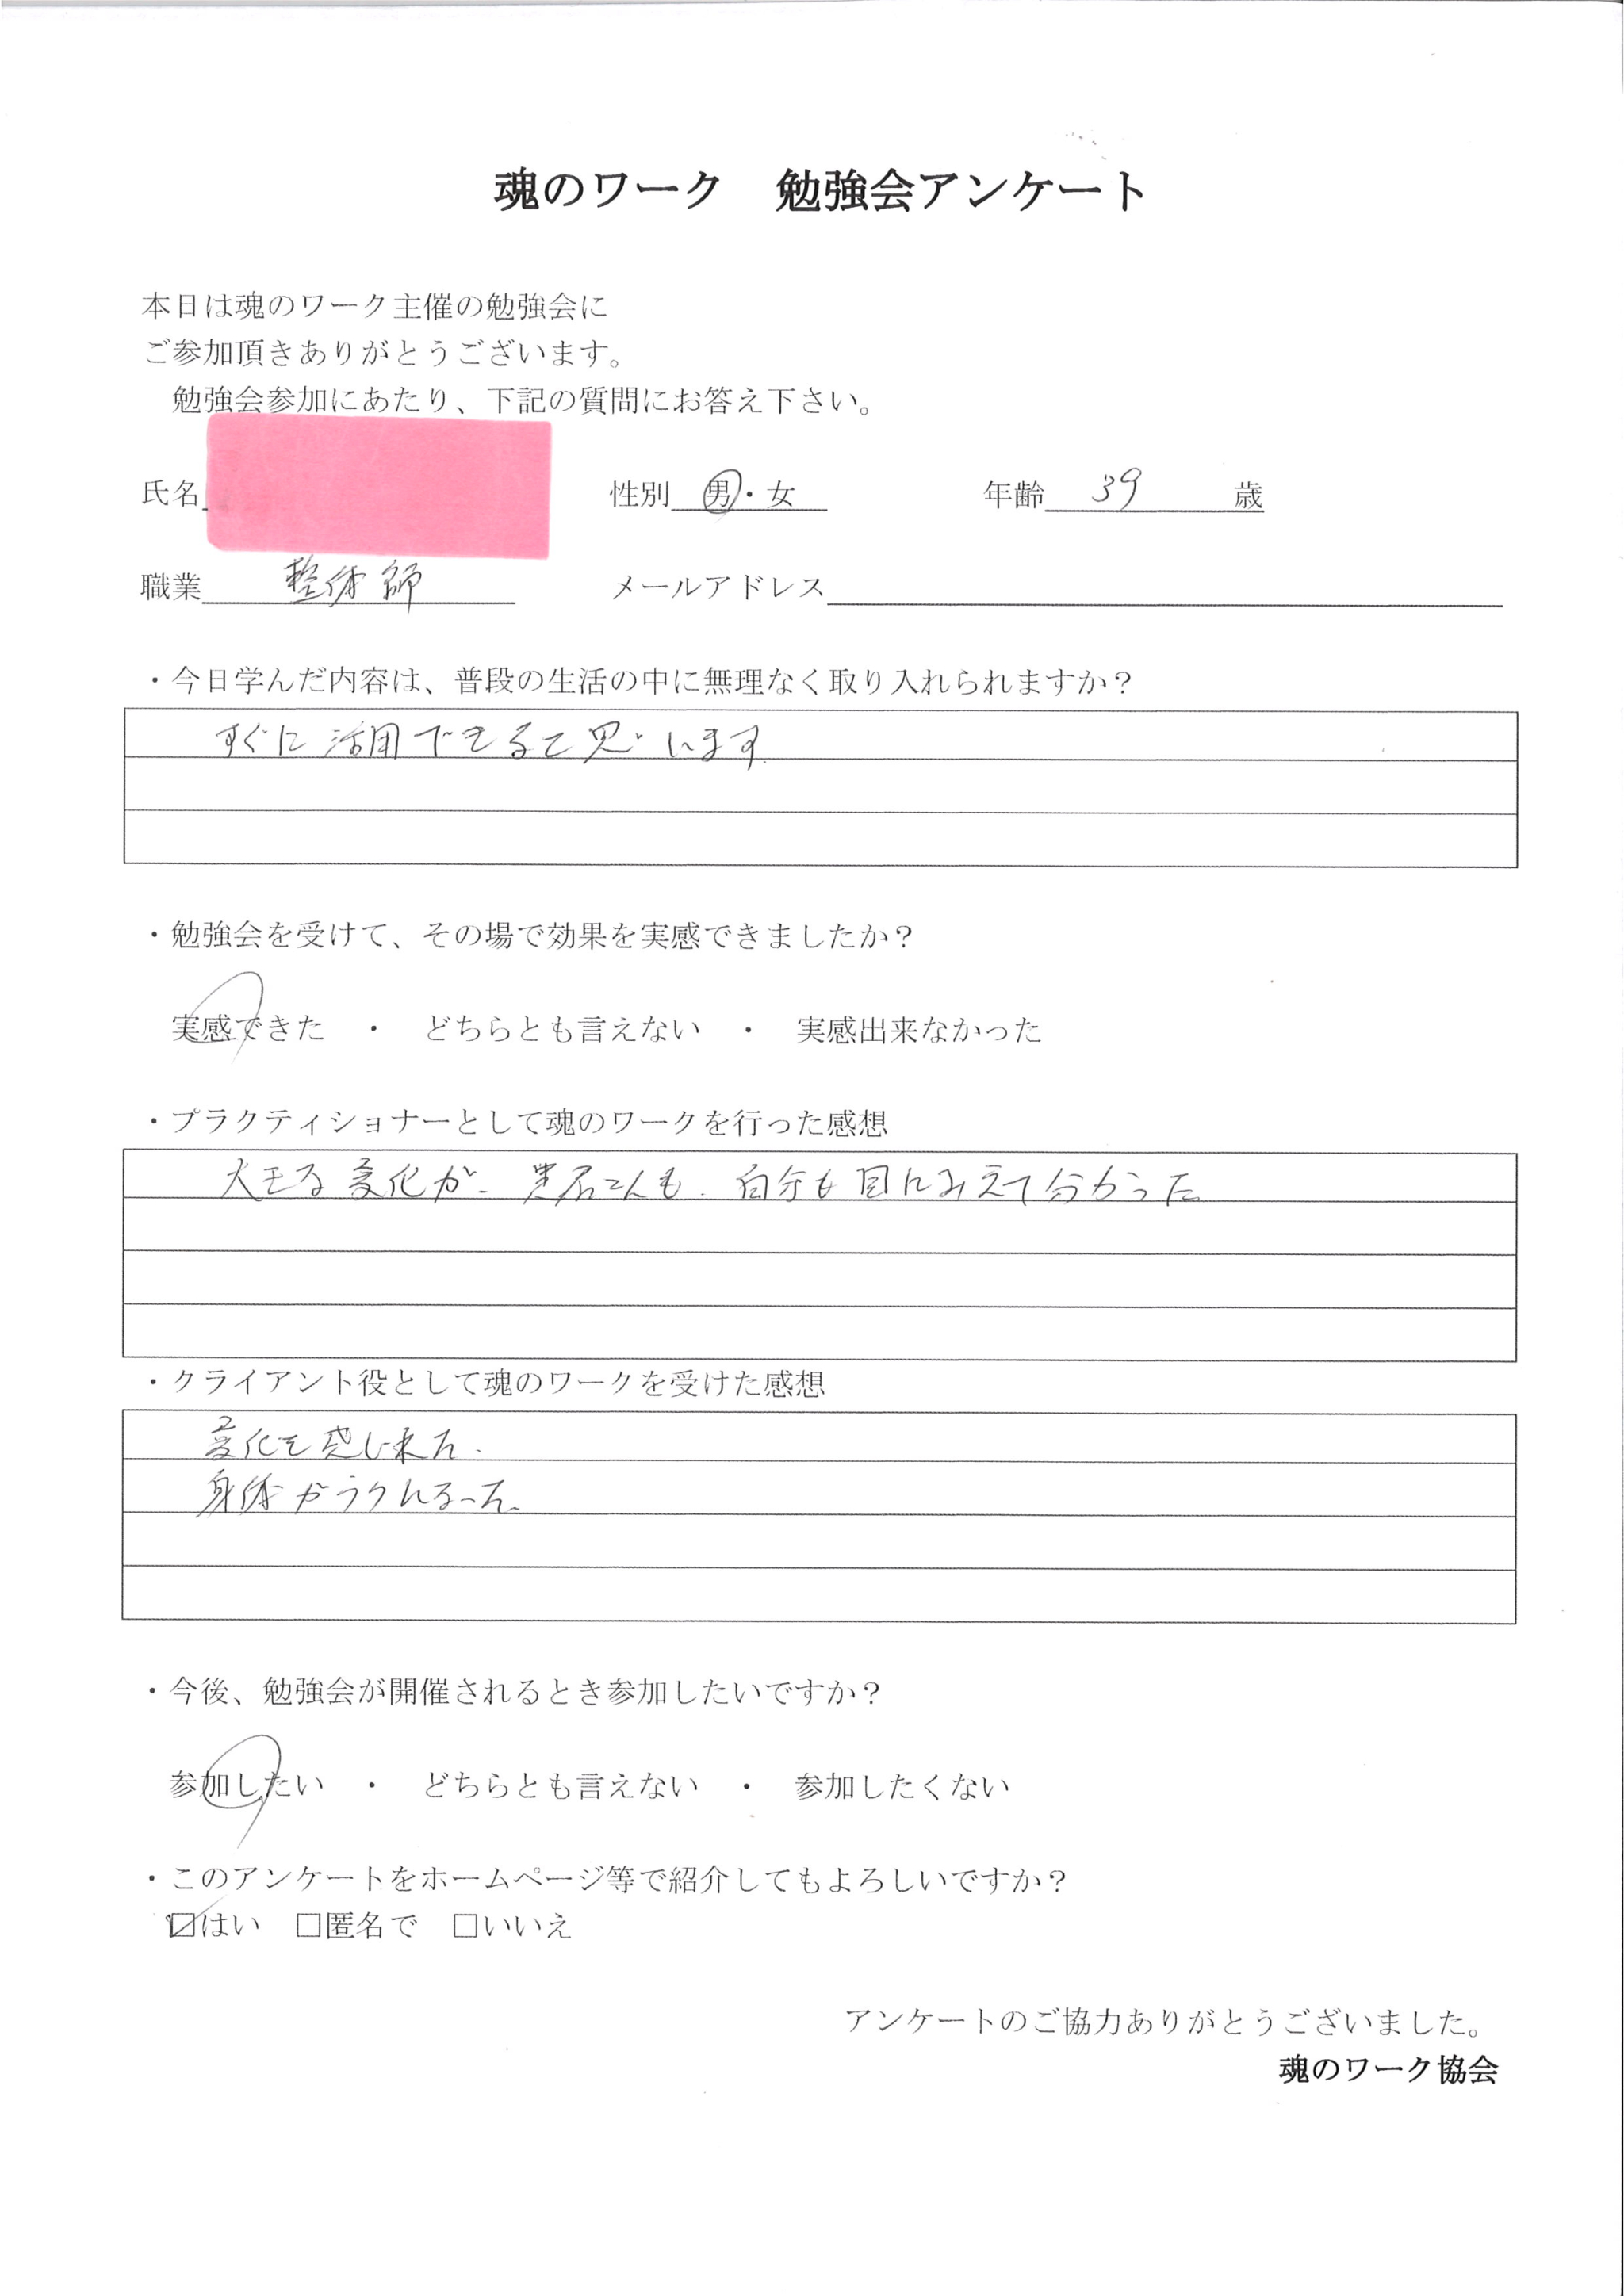 魂のワーク 勉強会アンケート
本日は魂のワーク主催の勉強会に
ご参加頂きありがとうございます。
勉強会参加にあたり、下記の質問にお答え下さい。
氏名 性別 男・女 年齢 39 歳
職業 整体師 メールアドレス
・今日学んだ内容は、普段の生活の中に無理なく取り入れられますか？
すぐに活用できると思います
・勉強会を受けて、その場で効果を実感できましたか？
実感できた ・ どちらとも言えない ・ 実感出来なかった
・プラクティショナーとして魂のワークを行った感想
大きな変化が、さんも、自分も目にみえて分かった
・クライアント役として魂のワークを受けた感想
変化を感じれた.
身体がラクになった.
・今後、勉強会が開催されるとき参加したいですか？
参加したい ・ どちらとも言えない ・ 参加したくない
・このアンケートをホームページ等で紹介してもよろしいですか？
☑はい □匿名で □いいえ
アンケートのご協力ありがとうございました。
魂のワーク協会